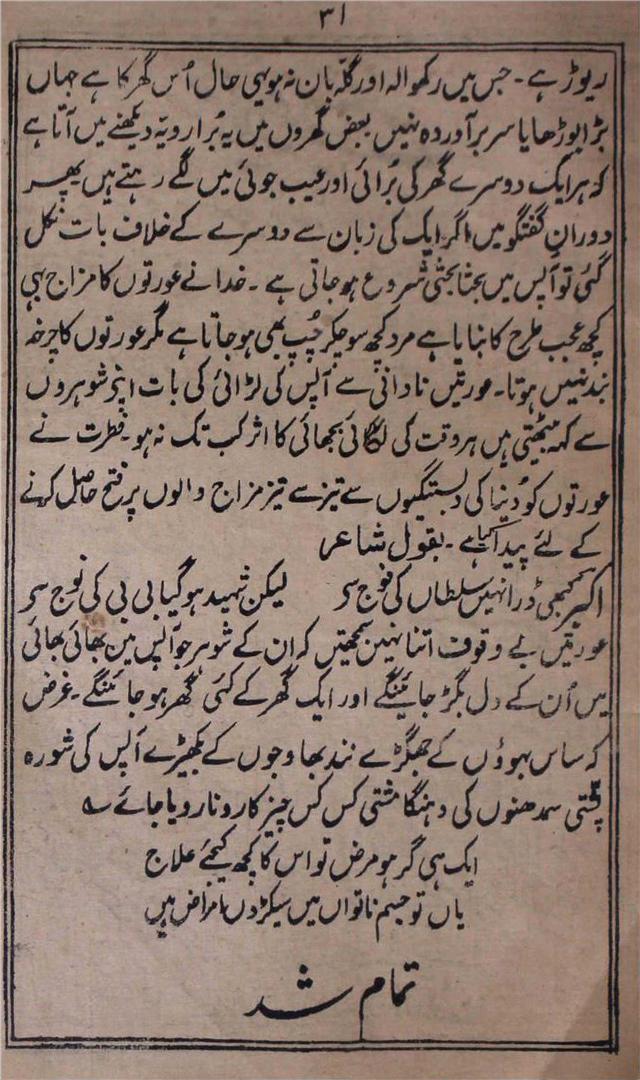 ۳۱
ریوڑ ہے۔ جس میں رکھوالہ اور گلّہ بان نہ ہو یہی حال اُس گھر کا ہے جہاں
بڑا بوڑھا یا سربرآوردہ نہیں بعض گھروں میں یہ بُرا رویہ دیکھنے میں آتا ہے
کہ ہر ایک دوسرے گھر کی بُرائی اور عیب جوئی میں لگے رہتے ہیں پھر
دوران گفتگو میں اگر ایک کی زبان سے دوسرے کے خلاف بات نکل
گئی تو آپس میں بحثا بحثی شروع ہو جاتی ہے۔ خدا نے عورتوں کا مزاج ہی
کچھ عجب طرح کا بنایا ہے مرد کچھ سوچکر چُپ بھی ہو جاتا ہے مگر عورتوں کا چرخہ
بند نہیں ہوتا۔ عورتیں نادانی سے آپس کی لڑائی کی بات اپنے شوہروں
سے کہہ بیٹھتی ہیں ہر وقت کی لگائی بجھائی کا اثر کب تک نہ ہو۔ فطرت نے
عورتوں کو دُنیا کی دلبستگیوں سے تیز سے تیز مزاج والوں پر فتح حاصل کرنے
کے لئے پیدا کیا ہے۔ بقول شاعر
اکبر کبھی ڈرا نہیں سلطاں کی فوج سے لیکن شہید ہو گیا بی بی کی نوج سے
عورتیں بے وقوف اتنا نہیں سمجھتیں کہ ان کے شوہر جو آپس میں بھائی بھائی
ہیں اُن کے دل بگڑ جائینگے اور ایک گھر کے کئی گھر ہو جائینگے۔ غرض
کہ ساس بہوؤں کے جھگڑے نند بھاوجوں کے بکھیڑے آپس کی شورہ
پُشتی سمدھنوں کی دہنگا مشتی کس کس چیز کا رونا رویا جائے ؎
ایک ہی گر ہو مرض تو اس کا کچھ کیجئے علاج
یاں تو جسم ناتواں میں سیکڑوں امراض ہیں
تمام شد